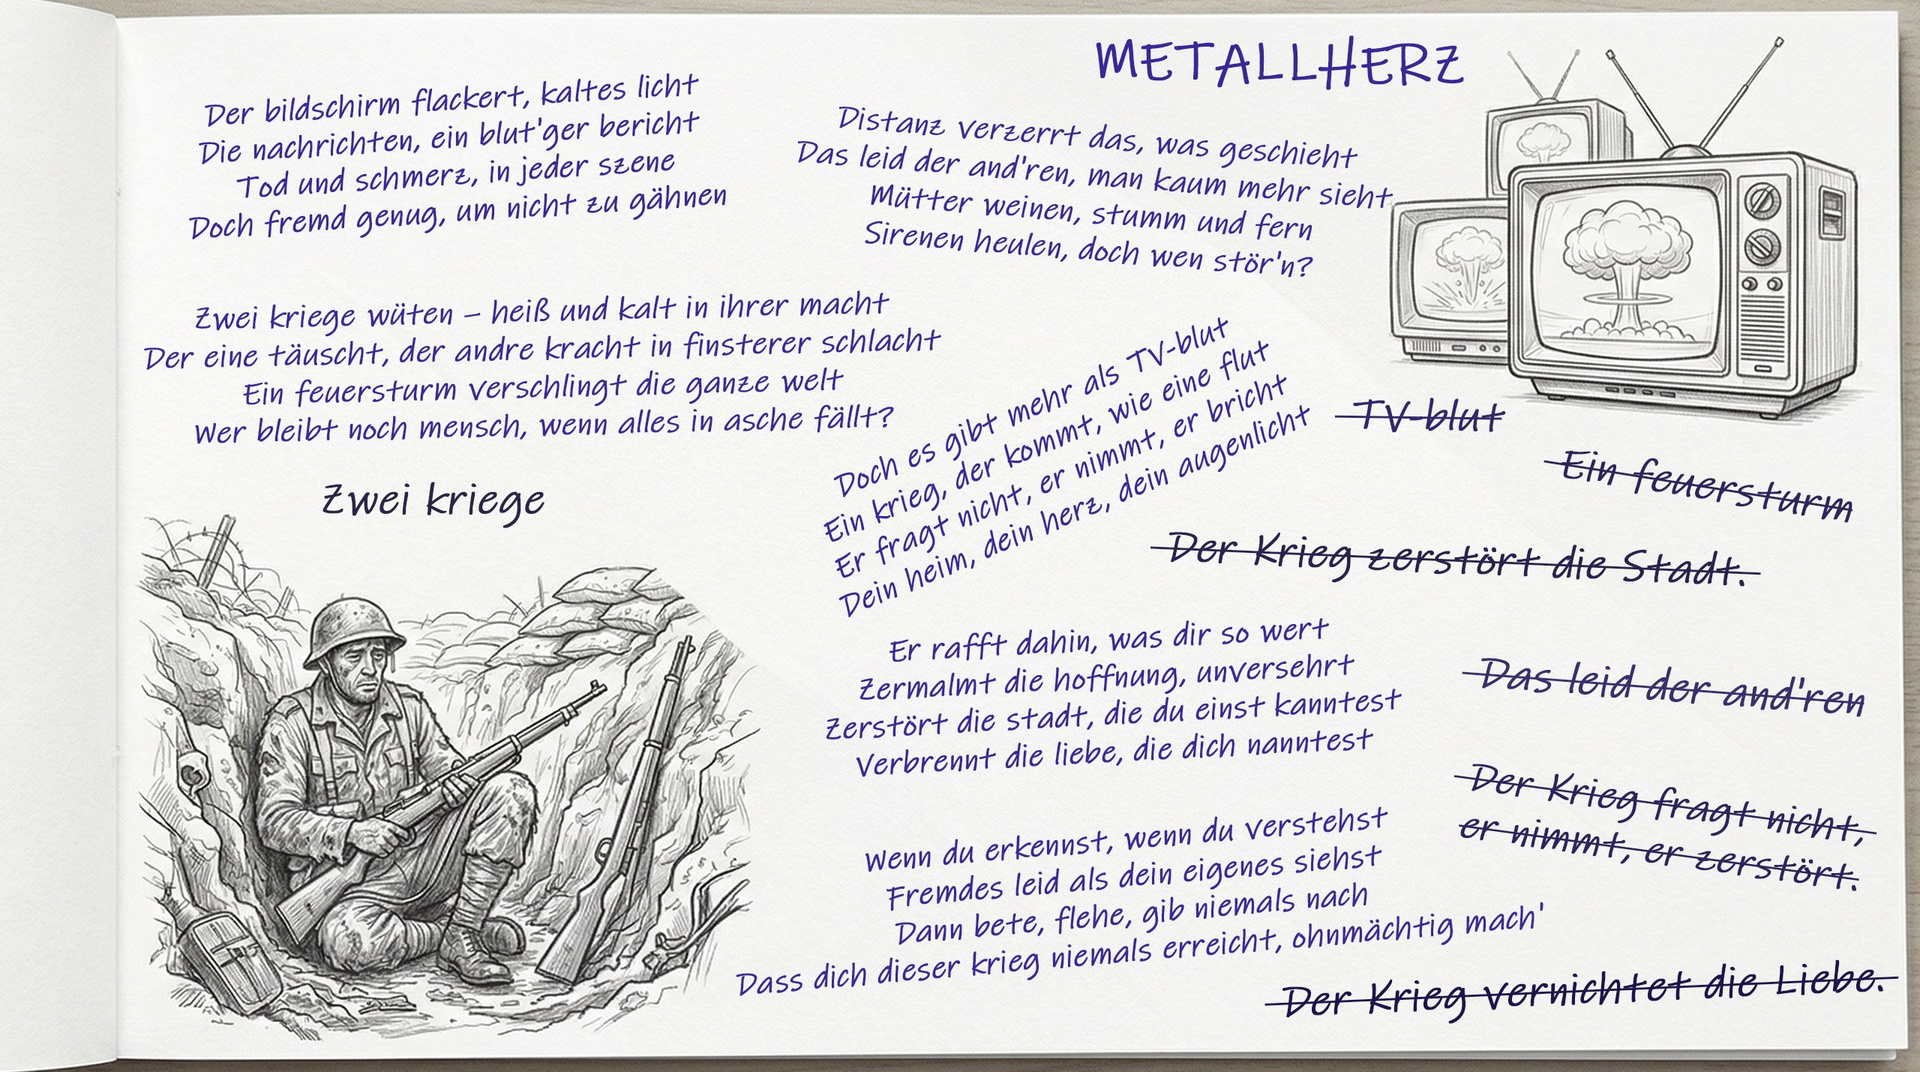 METALLHERZ
Der bildschirm flackert, kaltes licht
Die nachrichten, ein blut'ger bericht
Tod und schmerz, in jeder szene
Doch fremd genug, um nicht zu gähnen
Distanz verzerrt das, was geschieht
Das leid der and'ren, man kaum mehr sieht
Mütter weinen, stumm und fern
Sirenen heulen, doch wen stör'n?
Zwei kriege wüten – heiß und kalt in ihrer macht
Der eine täuscht, der andre kracht in finsterer schlacht
Ein feuersturm verschlingt die ganze welt
Wer bleibt noch mensch, wenn alles in asche fällt?
Zwei kriege
Doch es gibt mehr als TV-blut
Ein krieg, der kommt, wie eine flut
Er fragt nicht, er nimmt, er bricht
Dein heim, dein herz, dein augenlicht
TV-blut
Ein feuersturm
Der Krieg zerstört die Stadt.
Er rafft dahin, was dir so wert
Zermalmt die hoffnung, unversehrt
Zerstört die stadt, die du einst kanntest
Verbrennt die liebe, die dich nanntest
Das leid der and'ren
Der Krieg fragt nicht,
er nimmt, er zerstört.
Wenn du erkennst, wenn du verstehst
Fremdes leid als dein eigenes siehst
Dann bete, flehe, gib niemals nach
Dass dich dieser krieg niemals erreicht, ohnmächtig mach'
Der Krieg vernichtet die Liebe.